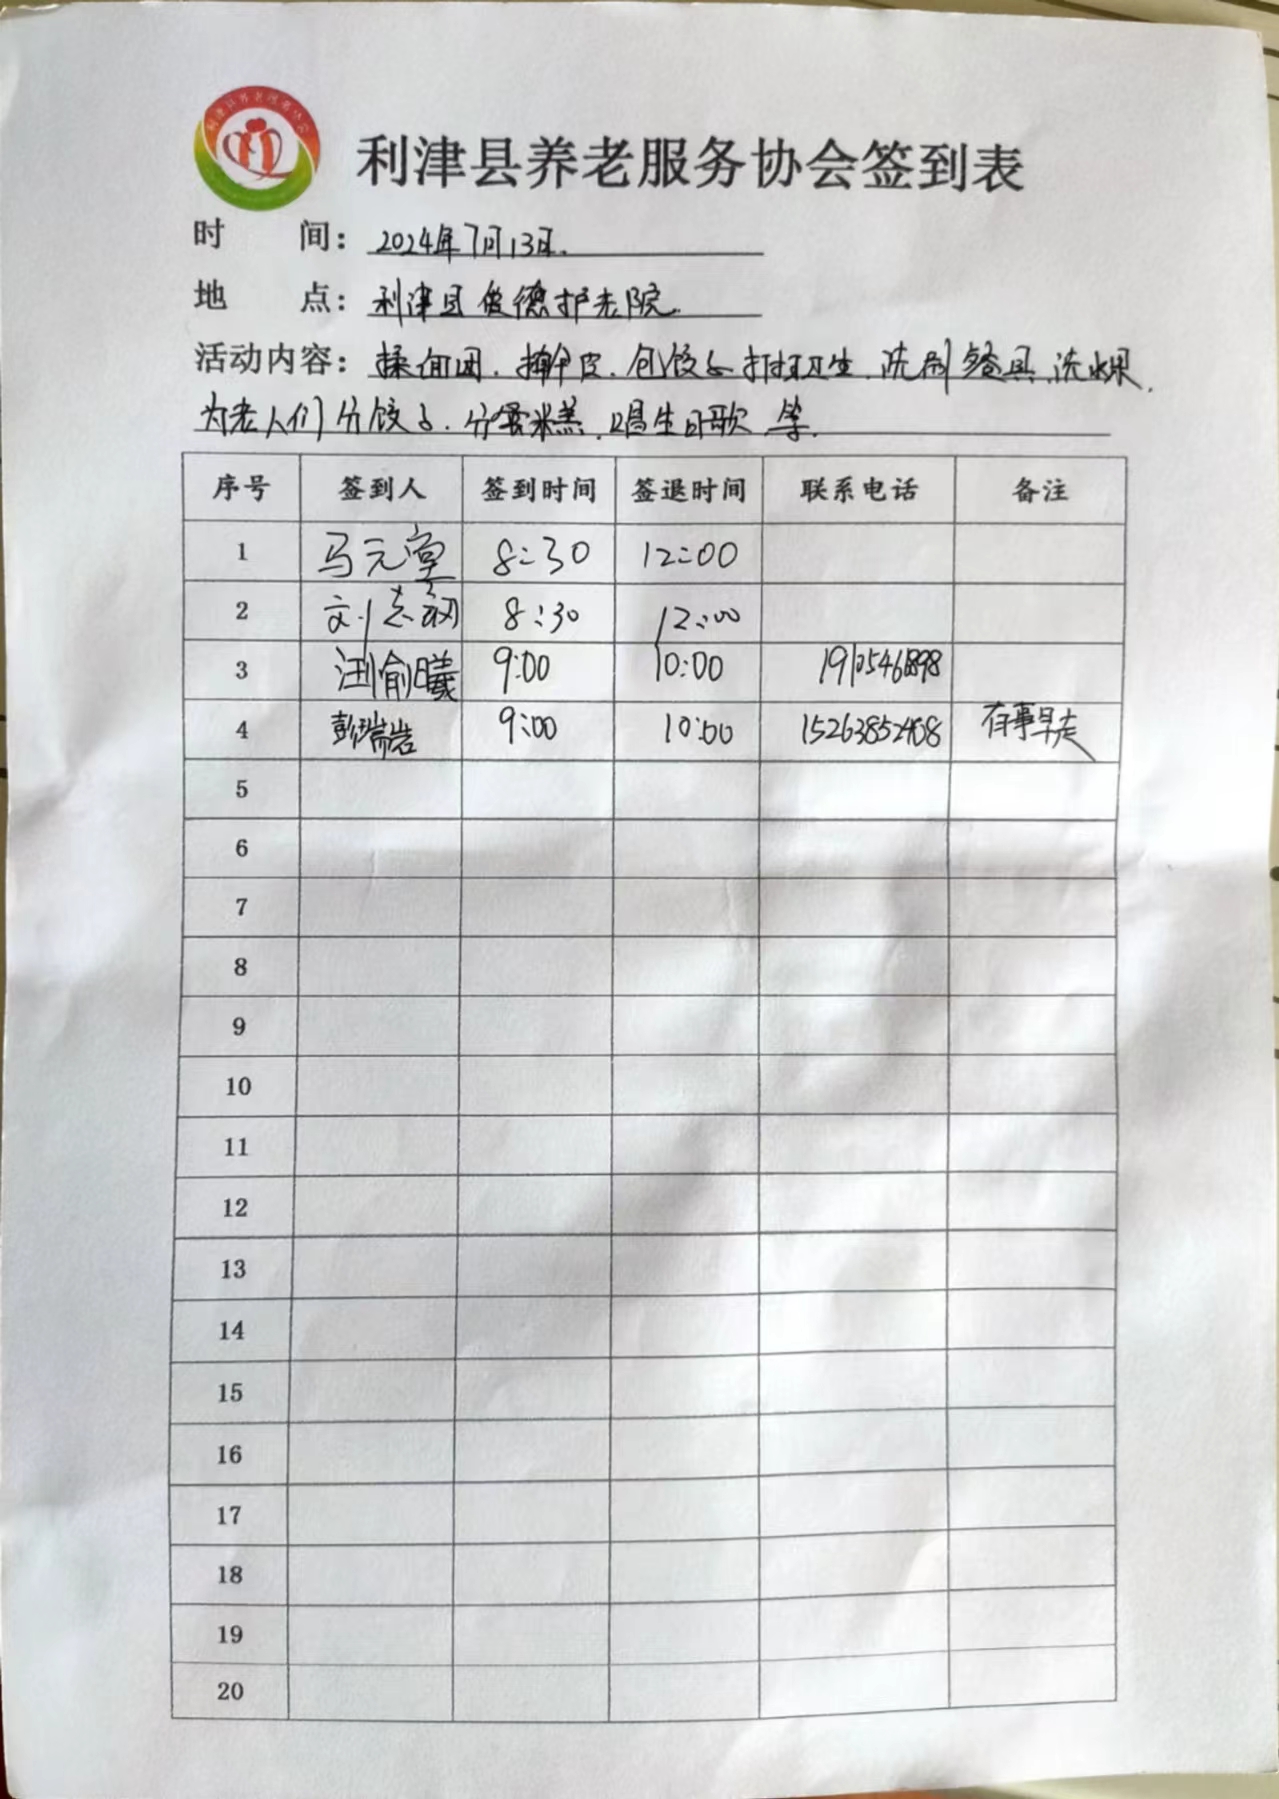 利津县养老服务协会
利津县养老服务协会签到表
时 间：2024年7月13日.
地 点：利津县俊德护老院.
活动内容：揉面团.擀皮.包饺子.打扫卫生.洗刷餐具.洗水果.
为老人们分饺子.分蛋糕.唱生日歌 等.
序号 签到人 签到时间 签退时间 联系电话 备注
1 马元堂 8:30 12:00
2 刘志 8:30 12:00
3 俞曦 9:00 10:00
4 彭瑞岩 9:00 10:00 有事早走
5
6
7
8
9
10
11
12
13
14
15
16
17
18
19
20